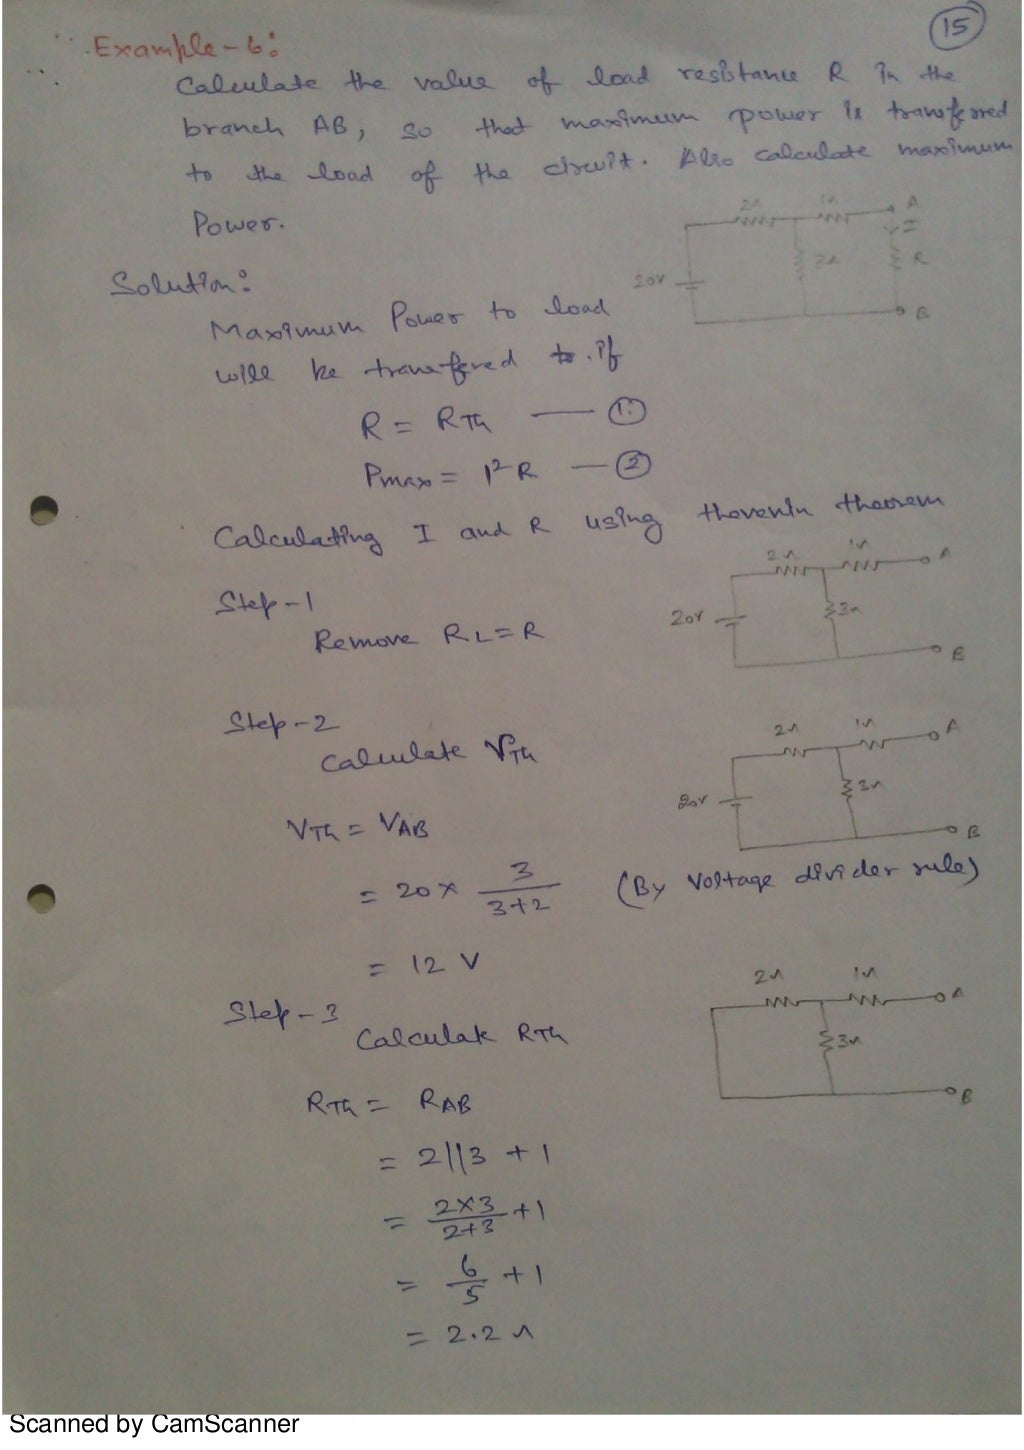 15
Example-6:
Calculate the value of load resistance R in the
branch AB, so that maximum power is transferred
to the load of the circuit. Also calculate maximum
Power.
2Ω 1Ω A
I
20V 3Ω R
B
Solution:
Maximum Power to load
will be transferred to. if
R = RTh — 1.
Pmax = I²R — 2
Calculating I and R using thevenin theorem
2Ω 1Ω A
Step-1
20V 3Ω
Remove RL=R
B
Step-2
2Ω 1Ω A
Calculate VTh
20V 3Ω
VTh = VAB
B
= 20 × 3/(3+2) (By Voltage divider rule)
= 12 V
2Ω 1Ω A
Step-3
Calculate RTh
3Ω
B
RTh = RAB
= 2||3 + 1
= (2×3)/(2+3) + 1
= 6/5 + 1
= 2.2 Ω
Scanned by CamScanner